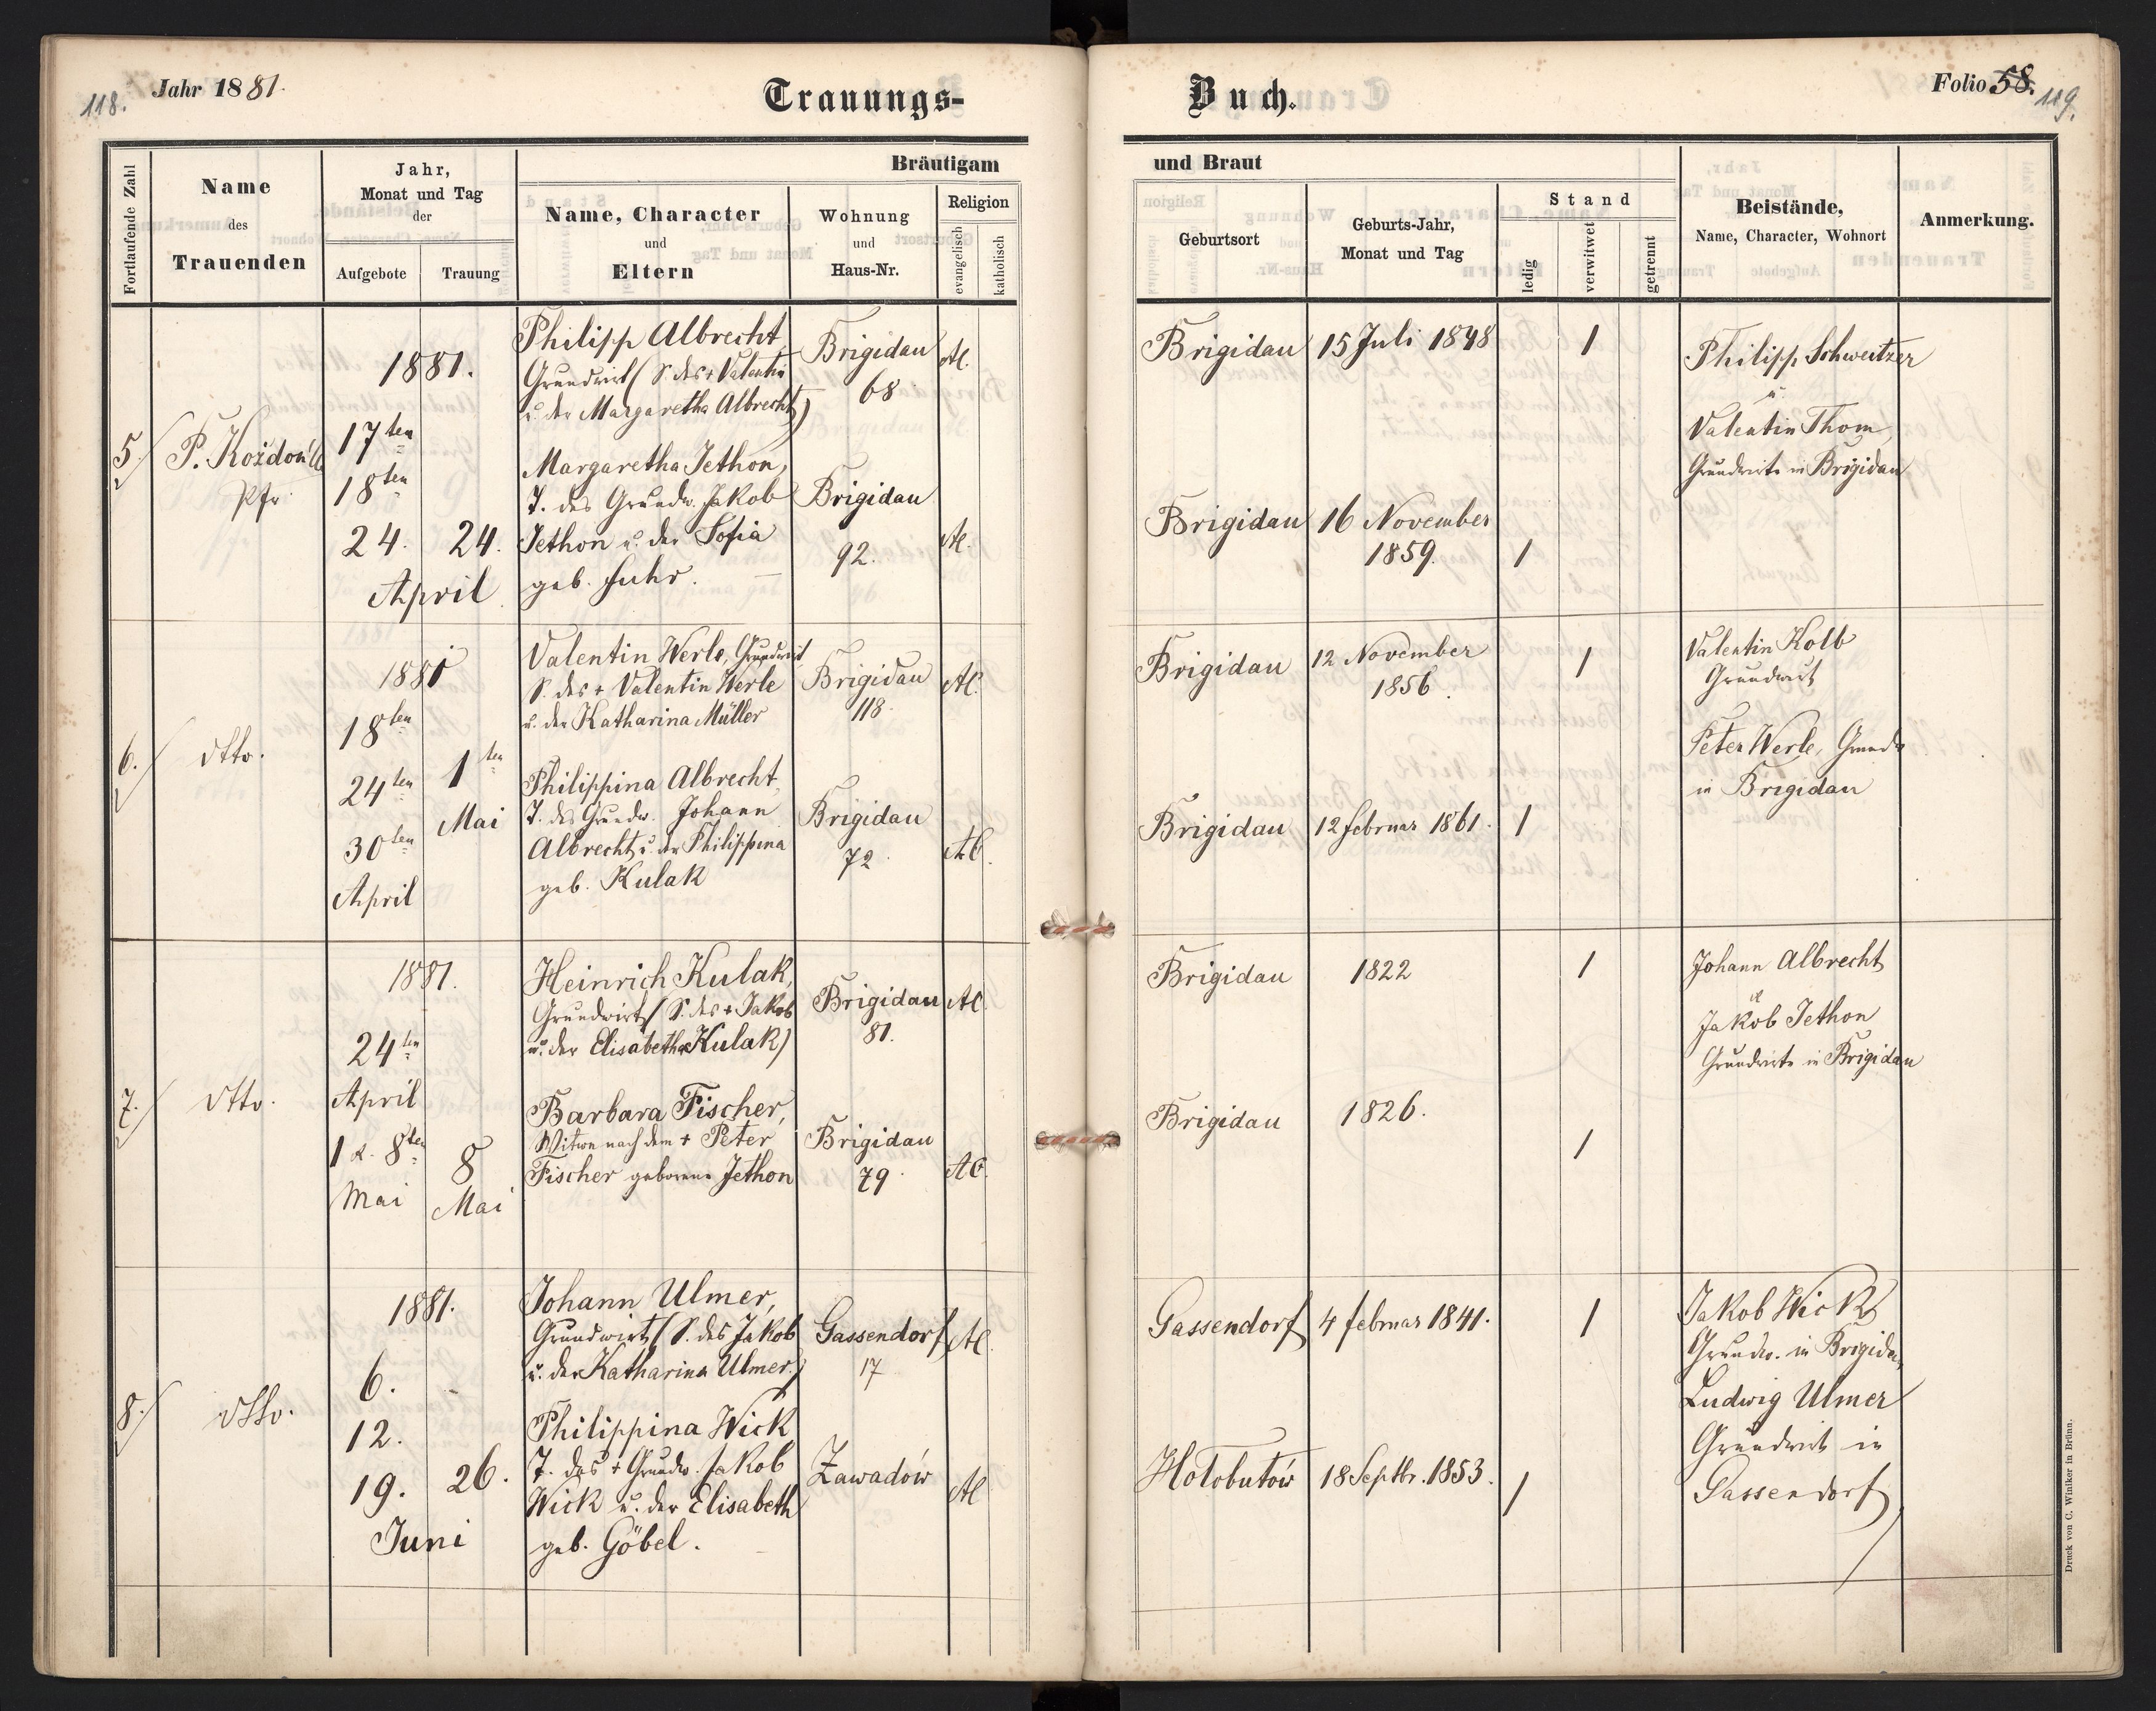 118.
Jahr 1881.
Trauungs-
Fortlaufende Zahl
Name
des
Trauenden
Jahr,
Monat und Tag
der
Aufgebote
Trauung
Bräutigam
Name, Character
und
Eltern
Wohnung
und
Haus-Nr.
Religion
evangelisch
katholisch
5./
P. Kożdoń
Pfr
1881.
17ten
18ten
24.
24.
April
Philipp Albrecht,
Grundwirt (S. des + Valentin
u. der Margaretha Albrecht)
Brigidau
68
AC.
Margaretha Jethon,
T. des Grundw. Jakob
Jethon u. der Sofia
geb. Fuhr.
Brigidau
92.
AC.
6./
dtto.
1881
18ten
24ten
30ten
April
1ten
Mai
Valentin Werle, Grundwirt,
S. des + Valentin Werle
u. der Katharina Müller
Brigidau
118.
AC.
Philippina Albrecht,
T. des Grundw. Johann
Albrecht u. der Philippina
geb. Kulak
Brigidau
72.
AC.
7./
dtto.
1881.
24ten
April
1 u. 8ten
Mai
8
Mai
Heinrich Kulak,
Grundwirt (S. des + Jakob
u. der Elisabetha Kulak)
Brigidau
81.
AC.
Barbara Fischer,
Witwe nach dem + Peter
Fischer geborene Jethon
Brigidau
79.
AC.
8./
dtto.
1881.
6.
12.
19.
26.
Juni
Johann Ulmer,
Grundwirt (S. des Jakob
u. der Katharina Ulmer.)
Gassendorf
17
AC.
Philippina Wick
T. des + Grundw. Jakob
Wick u. der Elisabeth
geb. Göbel.
Zawadów
AC
Buch.
Folio 58.
119.
und Braut
Geburtsort
Geburts-Jahr,
Monat und Tag
Stand
ledig
verwitwet
getrennt
Beistände,
Name, Character, Wohnort
Anmerkung.
Brigidau
15 Juli 1848
1
Philipp Schweitzer
u.
Valentin Thom,
Grundwirte in Brigidau
Brigidau
16 November
1859.
1
Brigidau
12 November
1856.
1
Valentin Kolb
Grundwirt
Peter Werle, Grundw
in Brigidau
Brigidau
12 Februar 1861.
1
Brigidau
1822
1
Johann Albrecht
u
Jakob Jethon
Grundwirte in Brigidau
Brigidau
1826.
1
Gassendorf
4 Februar 1841.
1
Jakob Wick
Grundw. in Brigidau,
Ludwig Ulmer
Grundwirt in
Gassendorf
Hołobutów
18 Septbr. 1853.
1
Druck von C. Winiker in Brünn.